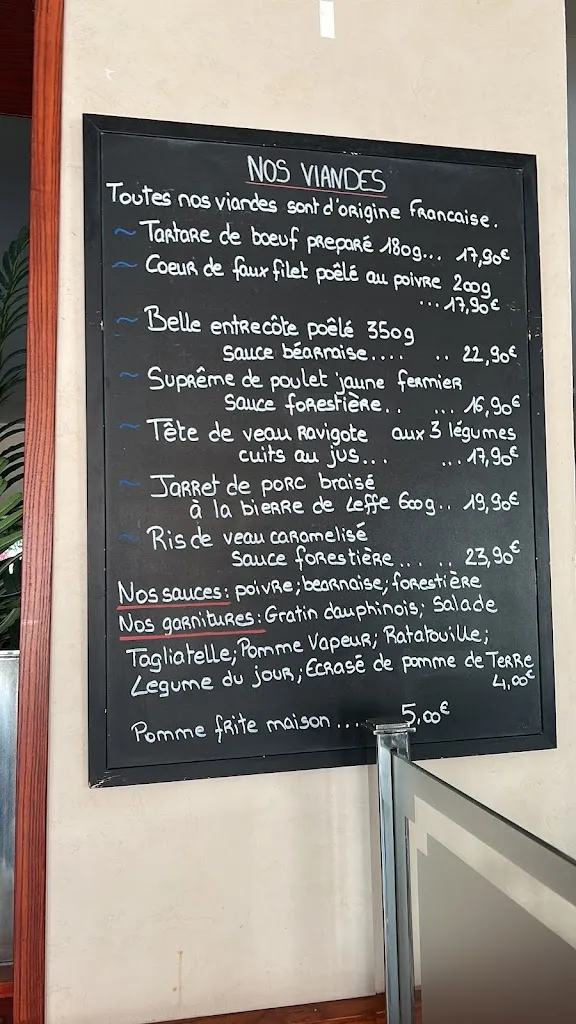 NOS VIANDES
Toutes nos viandes sont d'origine Francaise.
~ Tartare de boeuf preparé 180g... 17,90€
~ Coeur de faux filet poêlé au poivre 200g
... 17,90€
~ Belle entrecôte poêlé 350g
sauce béarnaise.... .. 22,90€
~ Suprême de poulet jaune fermier
Sauce forestière.. ... 16,90€
~ Tête de veau Ravigote aux 3 légumes
cuits au jus... ... 17,90€
~ Jarret de porc braisé
à la bierre de Leffe 600g.. 19,90€
~ Ris de veau caramelisé
Sauce forestière... .. 23,90€
Nos sauces: poivre; bearnaise; forestière
Nos garnitures: Gratin dauphinois; Salade
Tagliatelle; Pomme Vapeur; Ratatouille;
Legume du jour; Ecrasé de pomme de Terre
4,00€
Pomme frite maison.... 5,00€